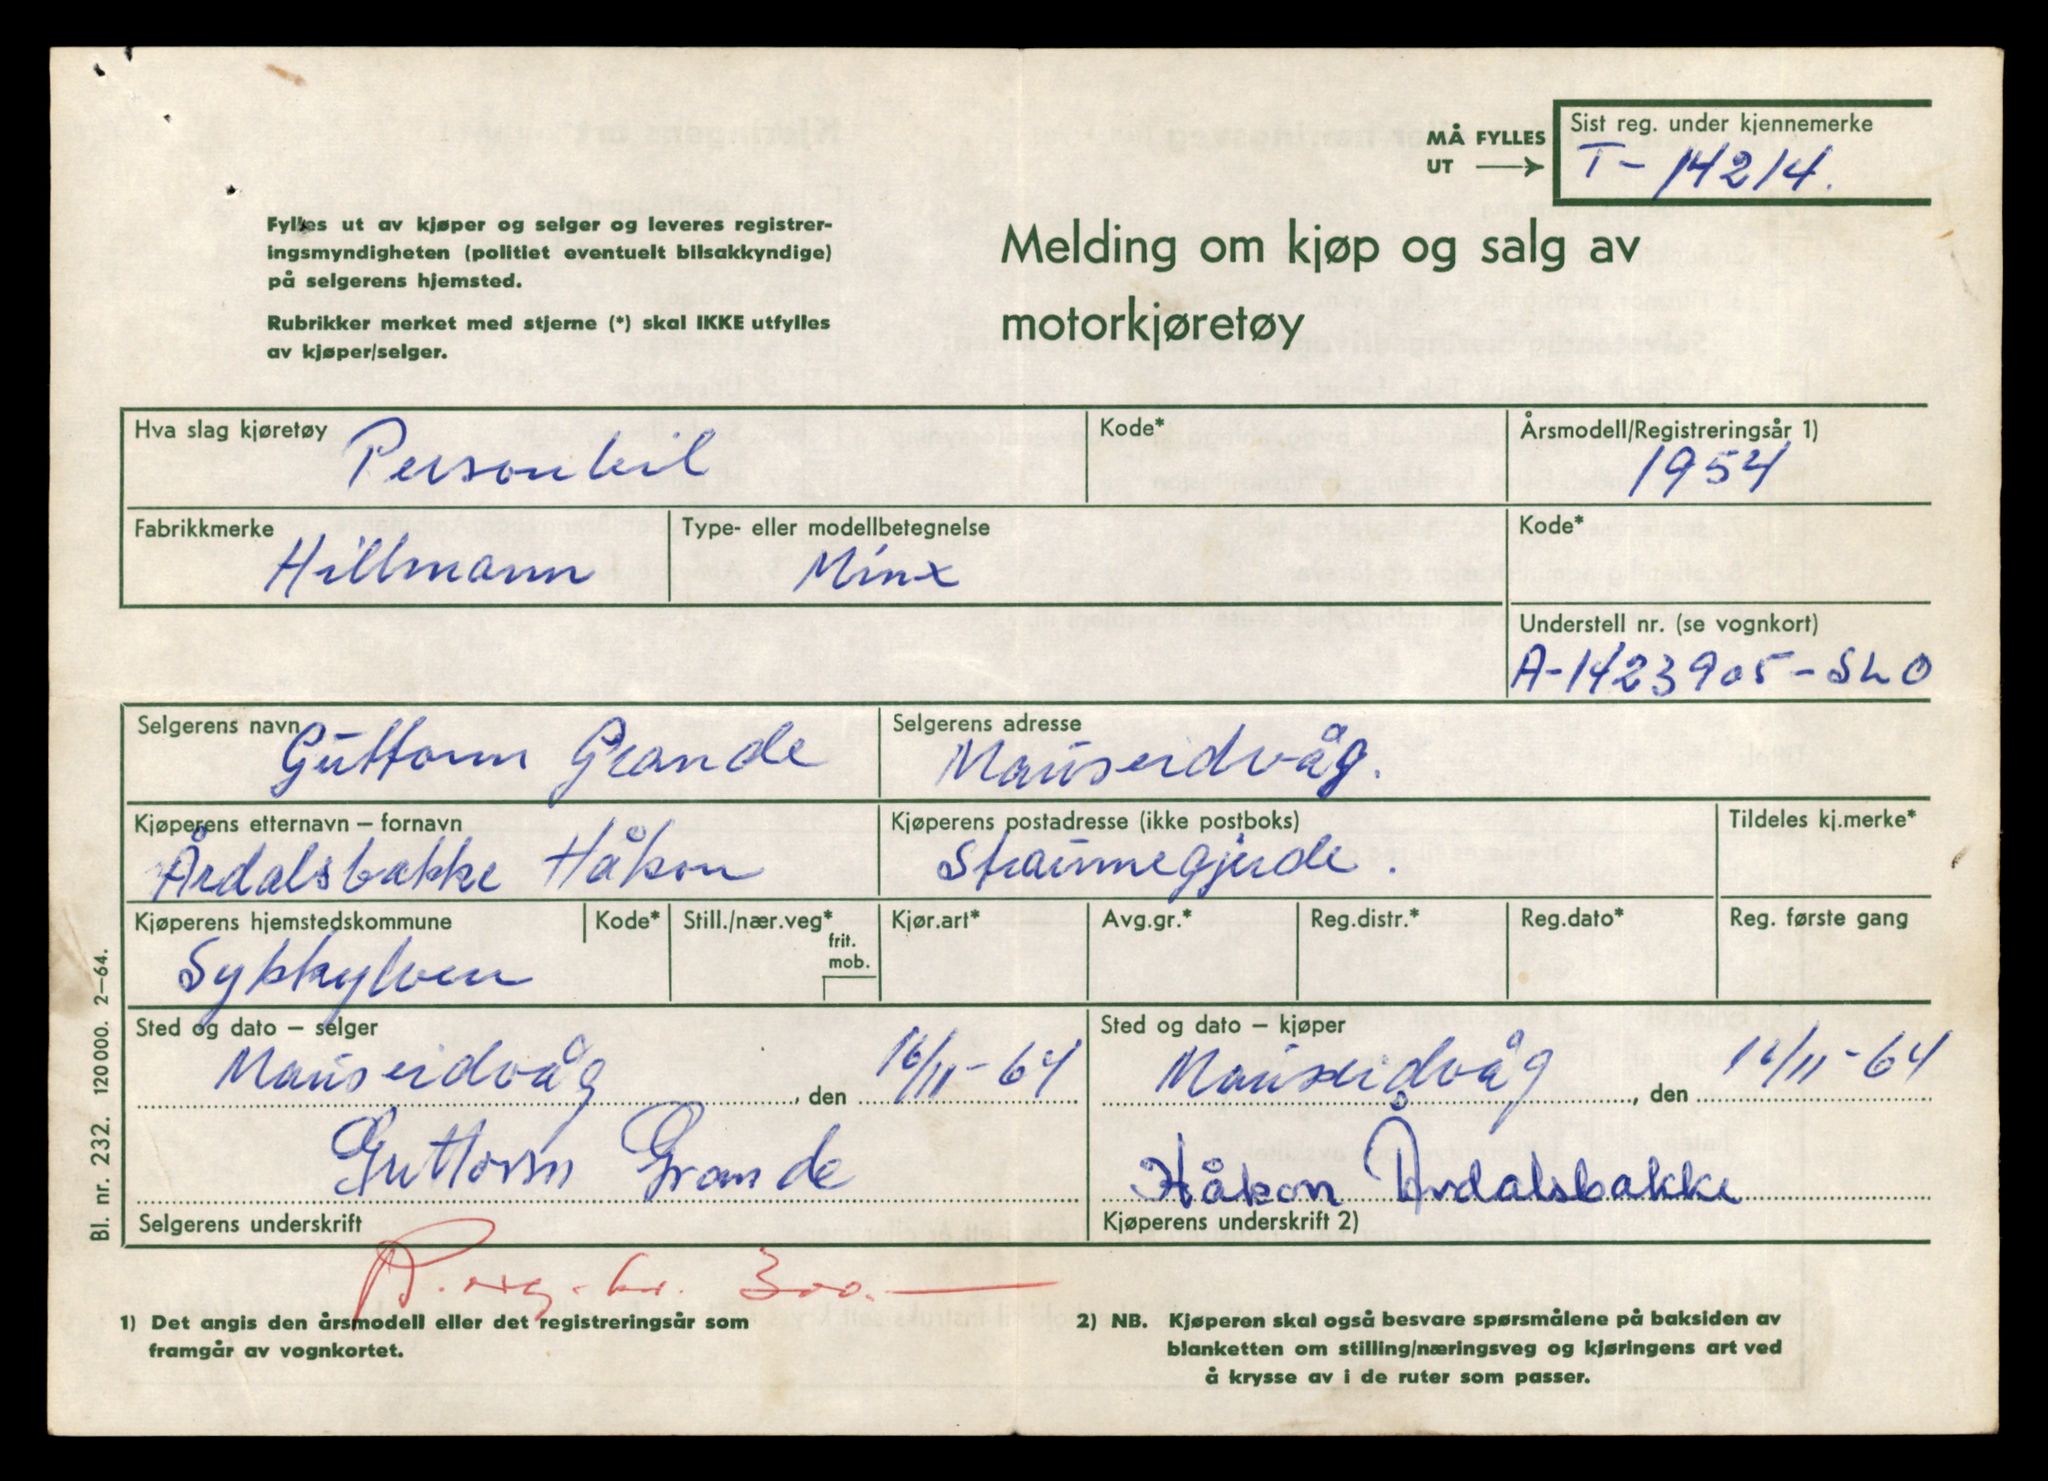 MÅ FYLLES
UT
Sist reg. under kjennemerke
T- 14214.
Fylles ut av kjøper og selger og leveres registrer-
ingsmyndigheten (politiet eventuelt bilsakkyndige)
på selgerens hjemsted.
Rubrikker merket med stjerne (*) skal IKKE utfylles
av kjøper/selger.
Melding om kjøp og salg av
motorkjøretøy
Hva slag kjøretøy
Personbil
Kode*
Årsmodell/Registreringsår 1)
1954
Fabrikkmerke
Hillmann
Type- eller modellbetegnelse
Minx
Kode*
Understell nr. (se vognkort)
A-1423905-SLO
Selgerens navn
Guttorm Grande
Selgerens adresse
Mauseidvåg.
Kjøperens etternavn – fornavn
Årdalsbakke Håkon
Kjøperens postadresse (ikke postboks)
Straumegjerde.
Tildeles kj.merke*
Kjøperens hjemstedskommune
Sykkylven
Kode*
Still./nær.veg*
frit.
mob.
Kjør.art*
Avg.gr.*
Reg.distr.*
Reg.dato*
Reg. første gang
Sted og dato – selger
Mauseidvåg, den 16/11-64
Guttorm Grande
Selgerens underskrift
Sted og dato – kjøper
Mauseidvåg, den 16/11-64
Håkon Årdalsbakke
Kjøperens underskrift 2)
kr. 300.—
1) Det angis den årsmodell eller det registreringsår som
framgår av vognkortet.
2) NB. Kjøperen skal også besvare spørsmålene på baksiden av
blanketten om stilling/næringsveg og kjøringens art ved
å krysse av i de ruter som passer.
Bl. nr. 232. 120 000. 2–64.